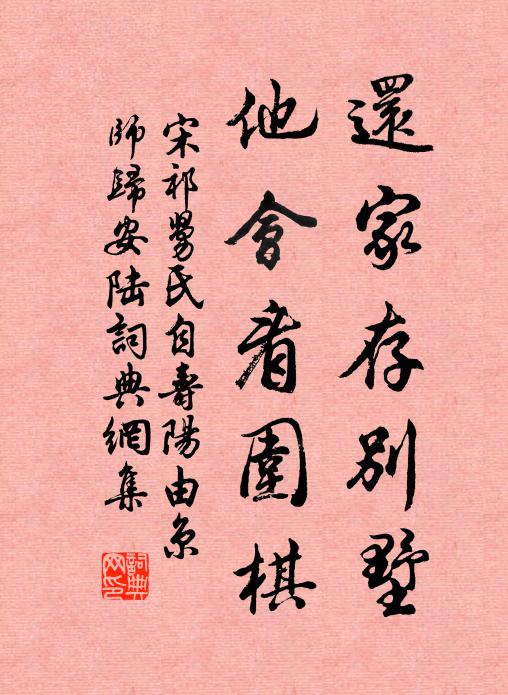 還家存別墅
他會看圍棋
宋祁勞民自壽陽由京
師歸安陸詞典網集
詞典
网印